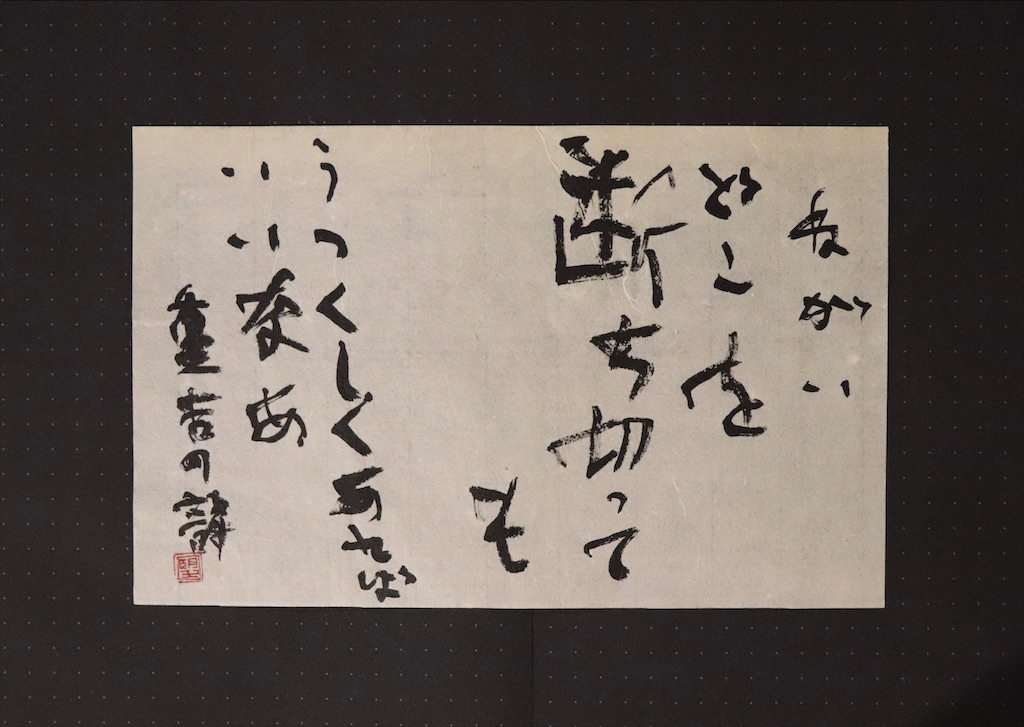 ねがい
どこを
断ち切って
も
うつくしくあれば
いいなあ
重吉の詩